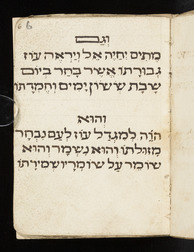 66
וגם
מתים יחיה אל ויראה עוז
גבורתו אשר בחר ביום
שבת ששון ימים וחמדתו
והוא
הוה למגדל עוז לעם נבחר
מזולתו והוא נשמר והוא
שומר על שומריו שמירתו